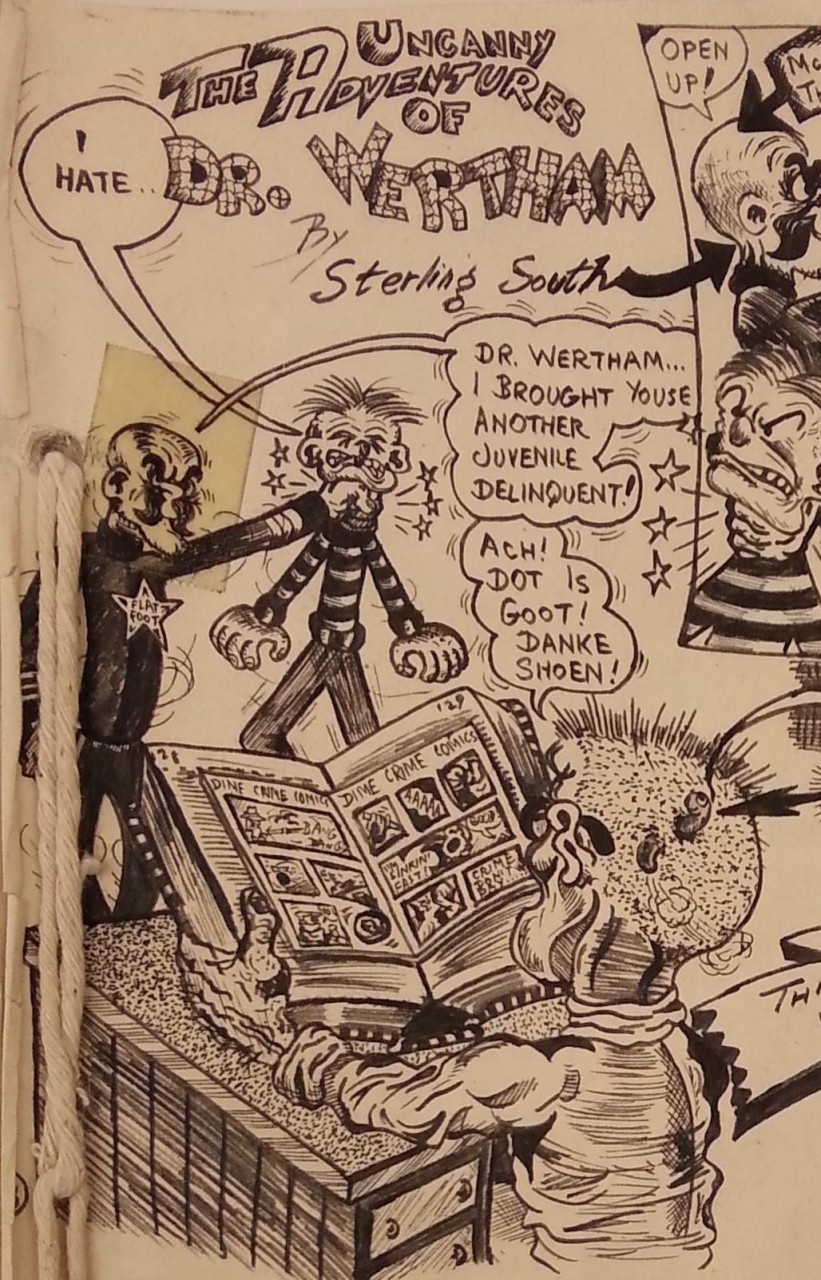 THE UNCANNY
ADVENTURES
OF
DR. WERTHAM
By
Sterling South
I
HATE..
DR. WERTHAM...
I BROUGHT YOUSE
ANOTHER
JUVENILE
DELINQUENT!
ACH!
DOT IS
GOOT!
DANKE
SHOEN!
A
FLAT
FOOT
128
129
DIME CRIME COMICS
DIME CRIME COMICS
BANG
BANG!
AAAAA
CRIME
OPEN
UP!